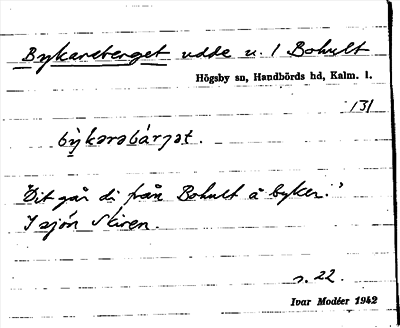 Bykareberget udde u. 1 Bohult
Högsby sn, Handbörds hd, Kalm. l.
131
bỳkarabárjət.
"Dit går di från Bohult å byker."
I sjön Skiren.
s. 22.
Ivar Modéer 1942